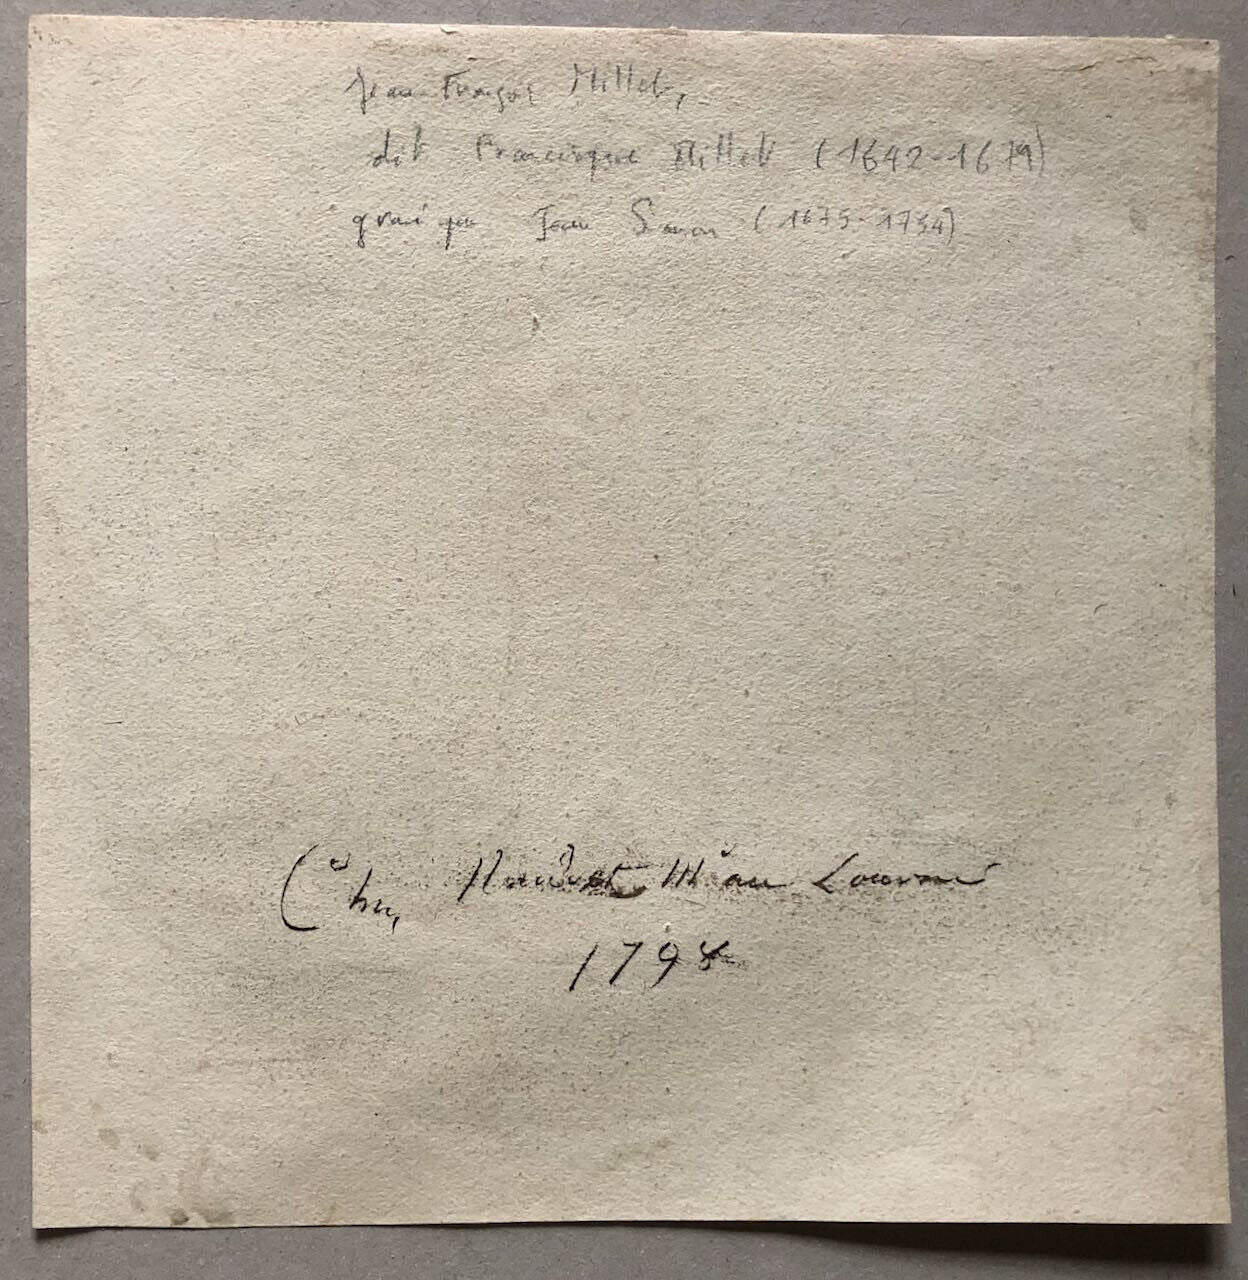 Jean-François Millet,
dit Francisque Millet (1642-1679)
gravé par Jean Simon (1675-1754)
Naudet Md au Louvre
1798